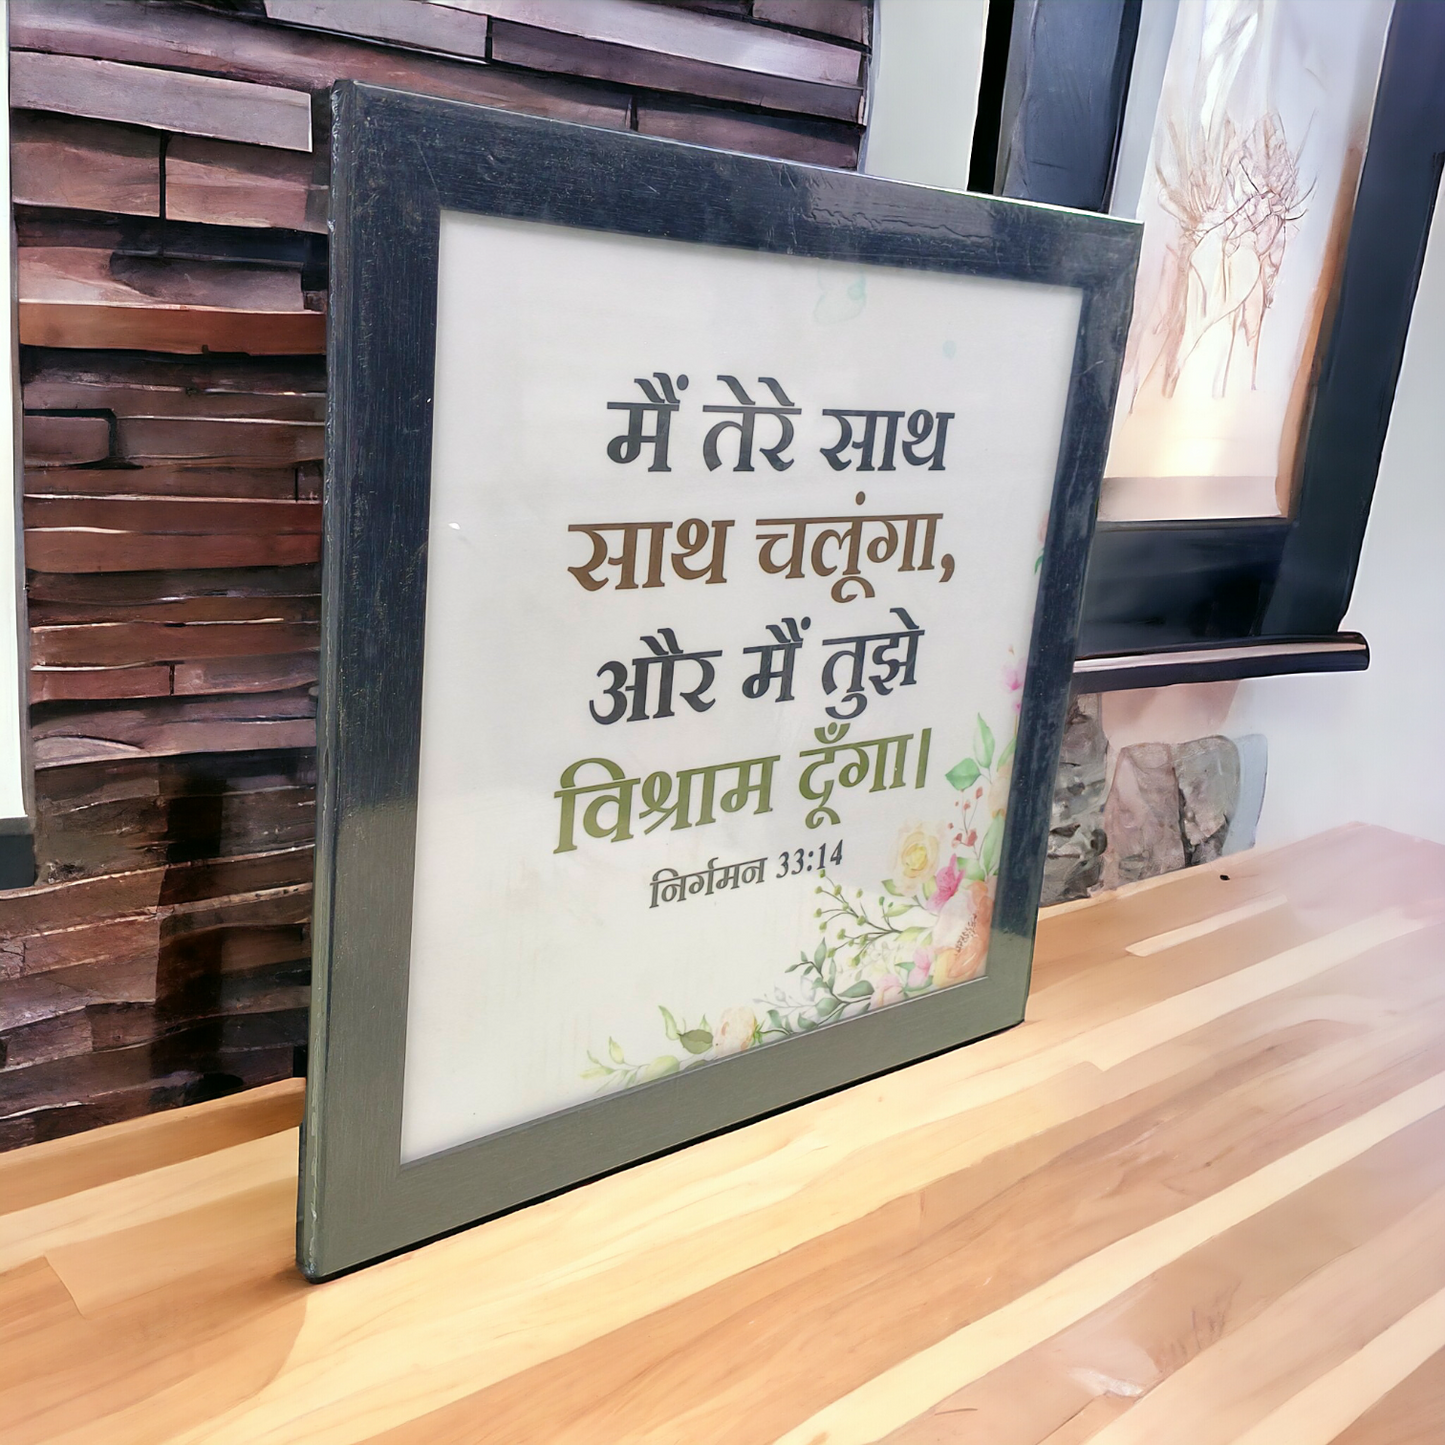 मैं तेरे साथ
साथ चलूंगा,
और मैं तुझे
विश्राम दूँगा।
निर्गमन 33:14